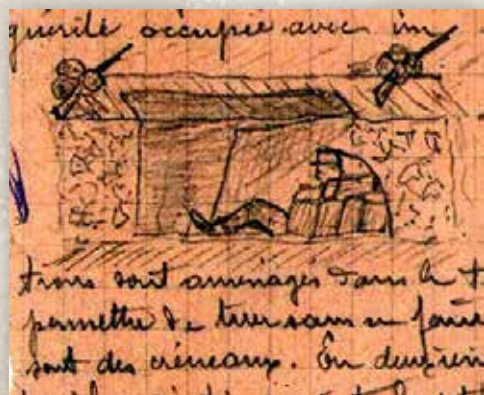 guérite occupée avec un
trous sont aménagés dans la t
permettre de tirer sans se faire
sont des créneaux. En deuxièm